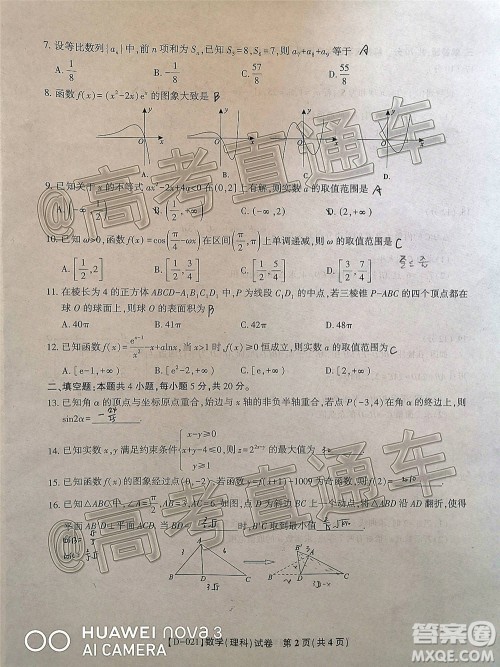 7. 设等比数列{aₙ}中,前 n 项和为 Sₙ,已知 S₃=8,S₆=7,则 a₇+a₈+a₉ 等于 A
A. 1/8 B. -1/8 C. 57/8 D. 55/8
8. 函数 f(x)=(x²-2x)eˣ 的图象大致是 B
A. B. C. D.
9. 已知关于 x 的不等式 ax²-2x+4a<0 在(0,2]上有解,则实数 a 的取值范围是 A
A. (-∞,1/2) B. [1/2,+∞) C. (-∞,2) D. (2,+∞)
10. 已知 ω>0,函数 f(x)=cos(π/4-ωx)在区间(π/2,π)上单调递减,则 ω 的取值范围是 C
A. [1/2,2] B. [1/2,3/4] C. [1/2,5/4] D. [3/2,7/4]
11. 在棱长为 4 的正方体 ABCD-A₁B₁C₁D₁ 中,P 为线段 C₁D₁ 的中点,若三棱锥 P-ABC 的四个顶点都在
球 O 的球面上,则球 O 的表面积为 B
A. 40π B. 41π C. 42π D. 48π
12. 已知函数 f(x)= -x+alnx,当 x>1 时,f(x)≥0 恒成立,则实数 a 的取值范围为 C
A. [-1,+∞) B. [e²-2,+∞) C. [-e,+∞) D. [-2,+∞)
二、填空题:本题共 4 小题,每小题 5 分,共 20 分。
13. 已知角 α 的顶点与坐标原点重合,始边与 x 轴的非负半轴重合,若点 P(-3,4)在角 α 的终边上,则
sin2α= -24/25
14. 已知实数 x,y 满足约束条件{x-y≥0 x+y-4≤0, y≥1 则 z=2 的最大值为
15. 已知函数 f(x)的图象经过点(0,-2),若函数 f(x+1)+1009 为奇函数,则
16. 已知△ABC 中,∠A=π/2,AB=3,AC=6,如图,点 D 为斜边 BC 上一个动点,将△ABD 沿 AD 翻折,使得
平面 AB'D⊥平面 ACD,当 BD= 时,B'C 取到最小值
A B' A B D C B D C
【D-021】数学(理科)试卷 第 2 页(共 4 页)
@高考直通车
HUAWEI nova 3
AI CAMERA
答案圈
MXQE.COM